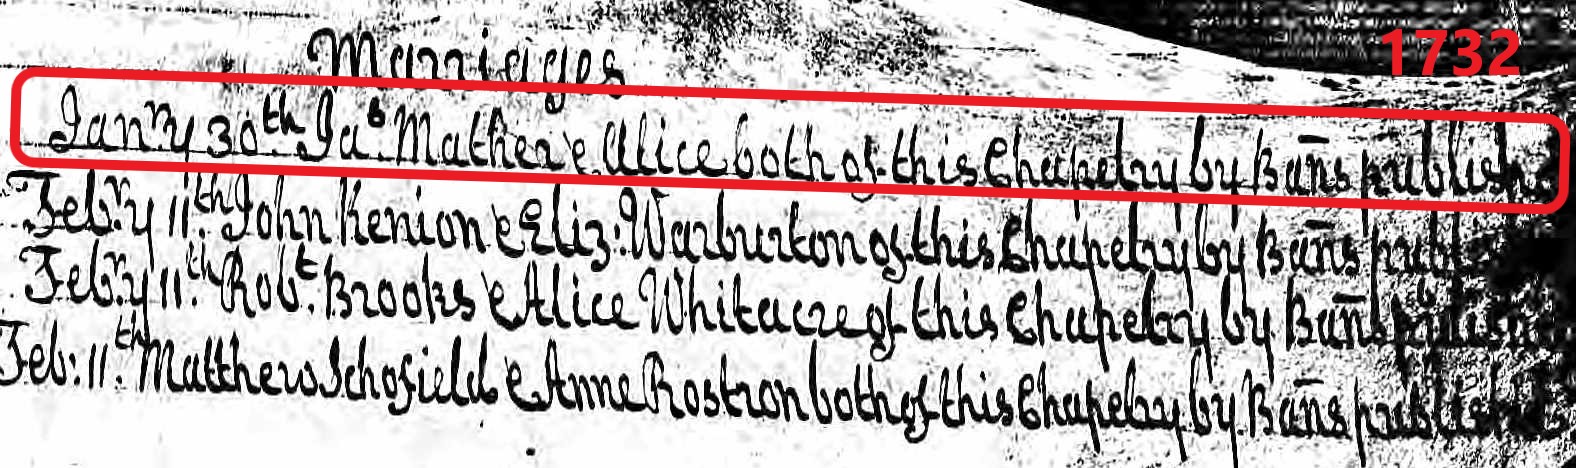 1732
Marriages
Janry 30th Jas Mather & Alice both of this Chapelry by Bans publishe
Febry 11th John Kenion & Eliz: Warburton of this Chapelry by Bans publ
Febry 11th Robt. Brooks & Alice Whitacre of this Chapelry by Bans publishe
Feb: 11th Matthew Schofield & Anne Rostron both of this Chapelry by Bans publishe